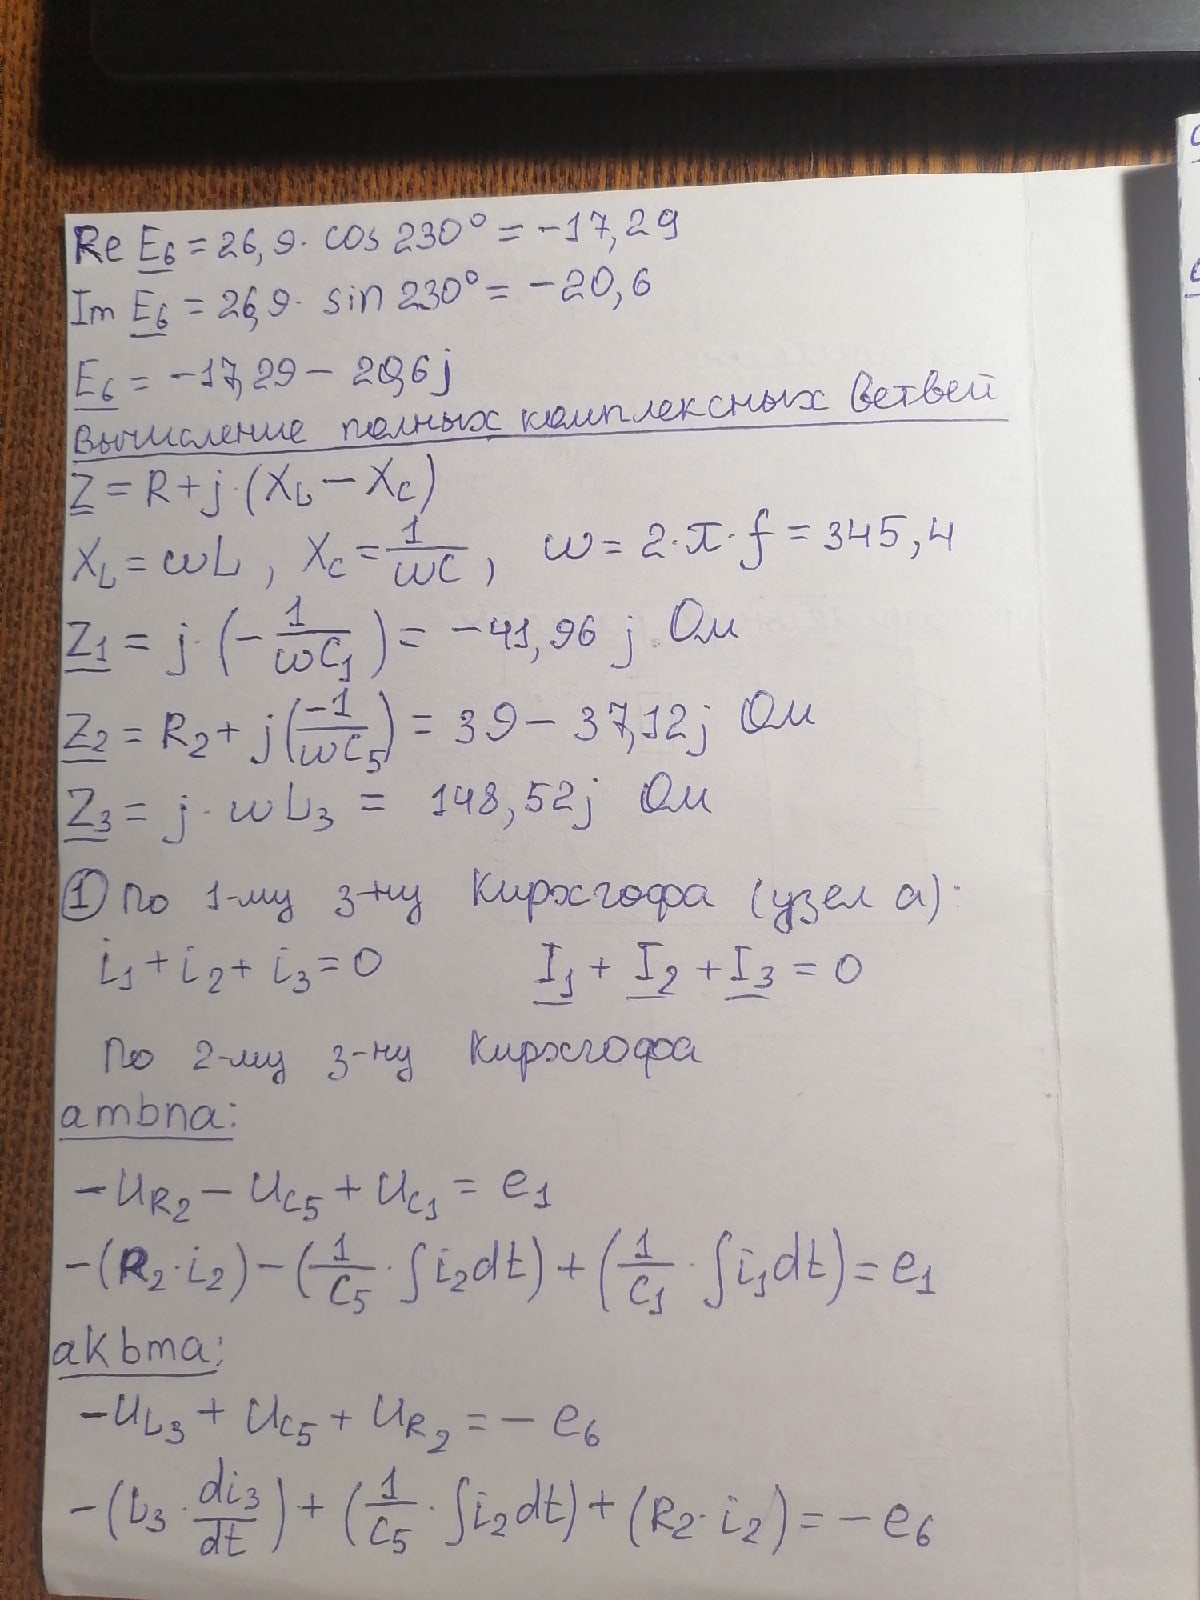 Re E6 = 26,9 · cos 230° = -17,29
Im E6 = 26,9 · sin 230° = -20,6
E6 = -17,29 - 20,6j
Вычисление полных комплексных ветвей
Z = R + j · (XL - XC)
XL = ωL , XC = 1/ωC , ω = 2·π·f = 345,4
Z1 = j · (-1/ωC1) = -41,96 j Ом
Z2 = R2 + j(-1/ωC5) = 39 - 37,12j Ом
Z3 = j · ωL3 = 148,52j Ом
① По 1-му з-ну Кирхгофа (узел a):
i1 + i2 + i3 = 0 I1 + I2 + I3 = 0
По 2-му з-ну Кирхгофа
ambna:
-UR2 - UC5 + UC1 = e1
-(R2·i2) - (1/C5 · ∫i2dt) + (1/C1 · ∫i1dt) = e1
akbma:
-UL3 + UC5 + UR2 = -e6
-(L3 · di3/dt) + (1/C5 · ∫i2dt) + (R2·i2) = -e6